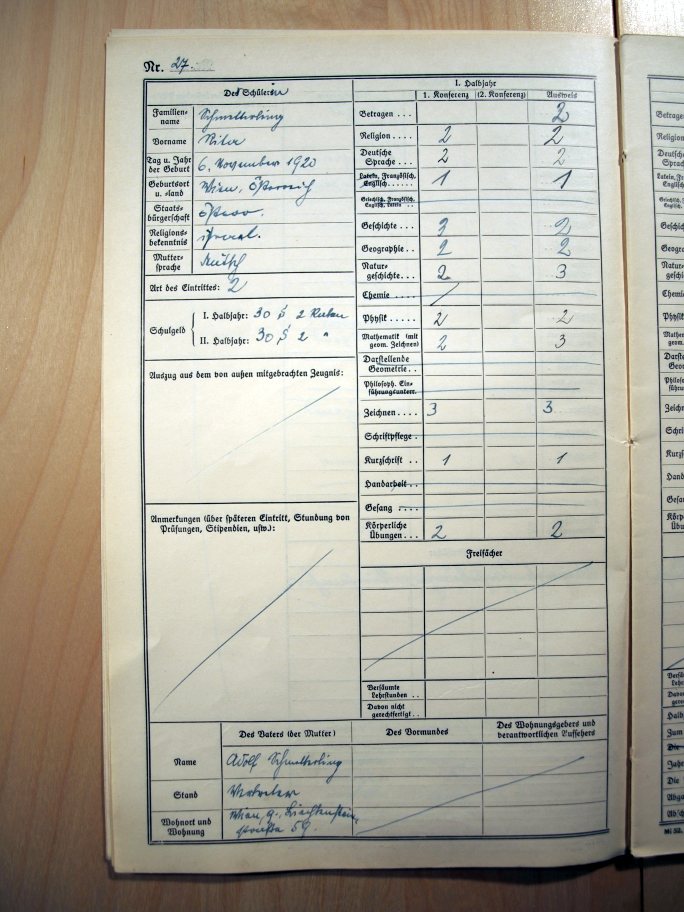 Nr. 27.
Des Schülers in
Familien-
name Schmetterling
Vorname Rita
Tag u. Jahr
der Geburt 6. November 1920
Geburtsort
u. -land Wien, Österreich
Staats-
bürgerschaft Österr.
Religions-
bekenntnis israel.
Mutter-
sprache deutsch
Art des Eintrittes: 2
Schulgeld
I. Halbjahr: 30 S 2 Raten
II. Halbjahr: 30 S 2 "
Auszug aus dem von außen mitgebrachten Zeugnis:
Anmerkungen (über späteren Eintritt, Stundung von
Prüfungen, Stipendien, usw.):
I. Halbjahr
1. Konferenz (2. Konferenz) Ausweis
Betragen . . . 2
Religion . . . . 2 2
Deutsche
Sprache . . . 2 2
Latein, Französisch,
Englisch . . . . . . 1 1
Griechisch, Französisch,
Englisch, Latein . .
Geschichte . . . 3 2
Geographie . . 2 2
Natur-
geschichte . . . 2 3
Chemie . . . .
Physik . . . . . 2 2
Mathematik (mit
geom. Zeichnen) 2 3
Darstellende
Geometrie . .
Philosoph. Ein-
führungsunterr.
Zeichnen . . . . 3 3
Schriftpflege .
Kurzschrift . . 1 1
Handarbeit . .
Gesang . . . .
Körperliche
Übungen . . . 2 2
Freifächer
Versäumte
Lehrstunden . .
Davon nicht
gerechtfertigt . .
Des Vaters (der Mutter) Des Vormundes Des Wohnungsgebers und
verantwortlichen Aufsehers
Name Adolf Schmetterling
Stand Vertreter
Wohnort und
Wohnung Wien, 9., Liechtenstein-
straße 59.